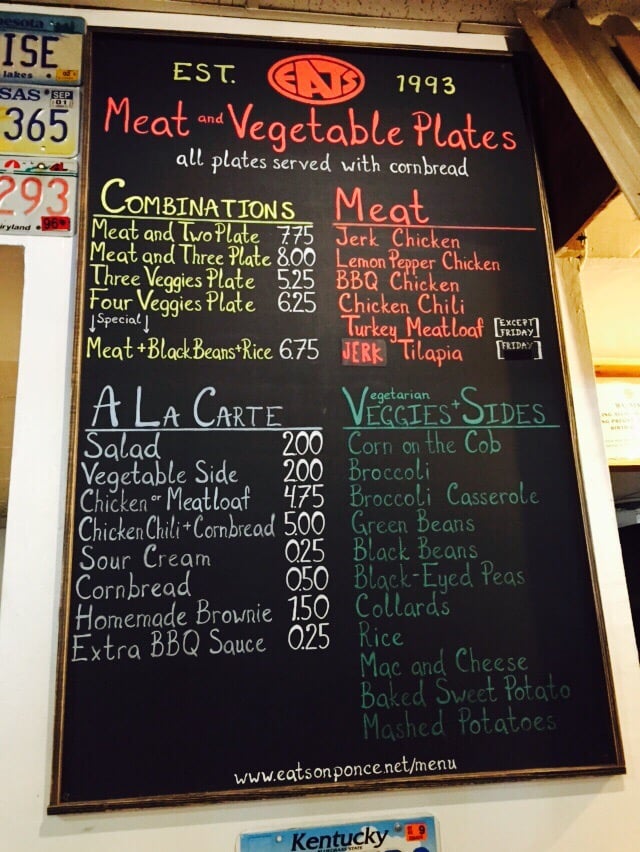 nesota
ISE
lakes
SAS
SEP
01
365
293
ryland
96
EST. EATS 1993
Meat and Vegetable Plates
all plates served with cornbread
COMBINATIONS
Meat and Two Plate 7.75
Meat and Three Plate 8.00
Three Veggies Plate 5.25
Four Veggies Plate 6.25
↓Special↓
Meat+Black Beans+Rice 6.75
Meat
Jerk Chicken
Lemon Pepper Chicken
BBQ Chicken
Chicken Chili
Turkey Meatloaf [EXCEPT FRIDAY]
JERK Tilapia [FRIDAY]
A LA CARTE
Salad 2.00
Vegetable Side 2.00
Chicken or Meatloaf 4.75
Chicken Chili+Cornbread 5.00
Sour Cream 0.25
Cornbread 0.50
Homemade Brownie 1.50
Extra BBQ Sauce 0.25
Vegetarian
VEGGIES+SIDES
Corn on the Cob
Broccoli
Broccoli Casserole
Green Beans
Black Beans
Black-Eyed Peas
Collards
Rice
Mac and Cheese
Baked Sweet Potato
Mashed Potatoes
www.eatsonponce.net/menu
Kentucky
9